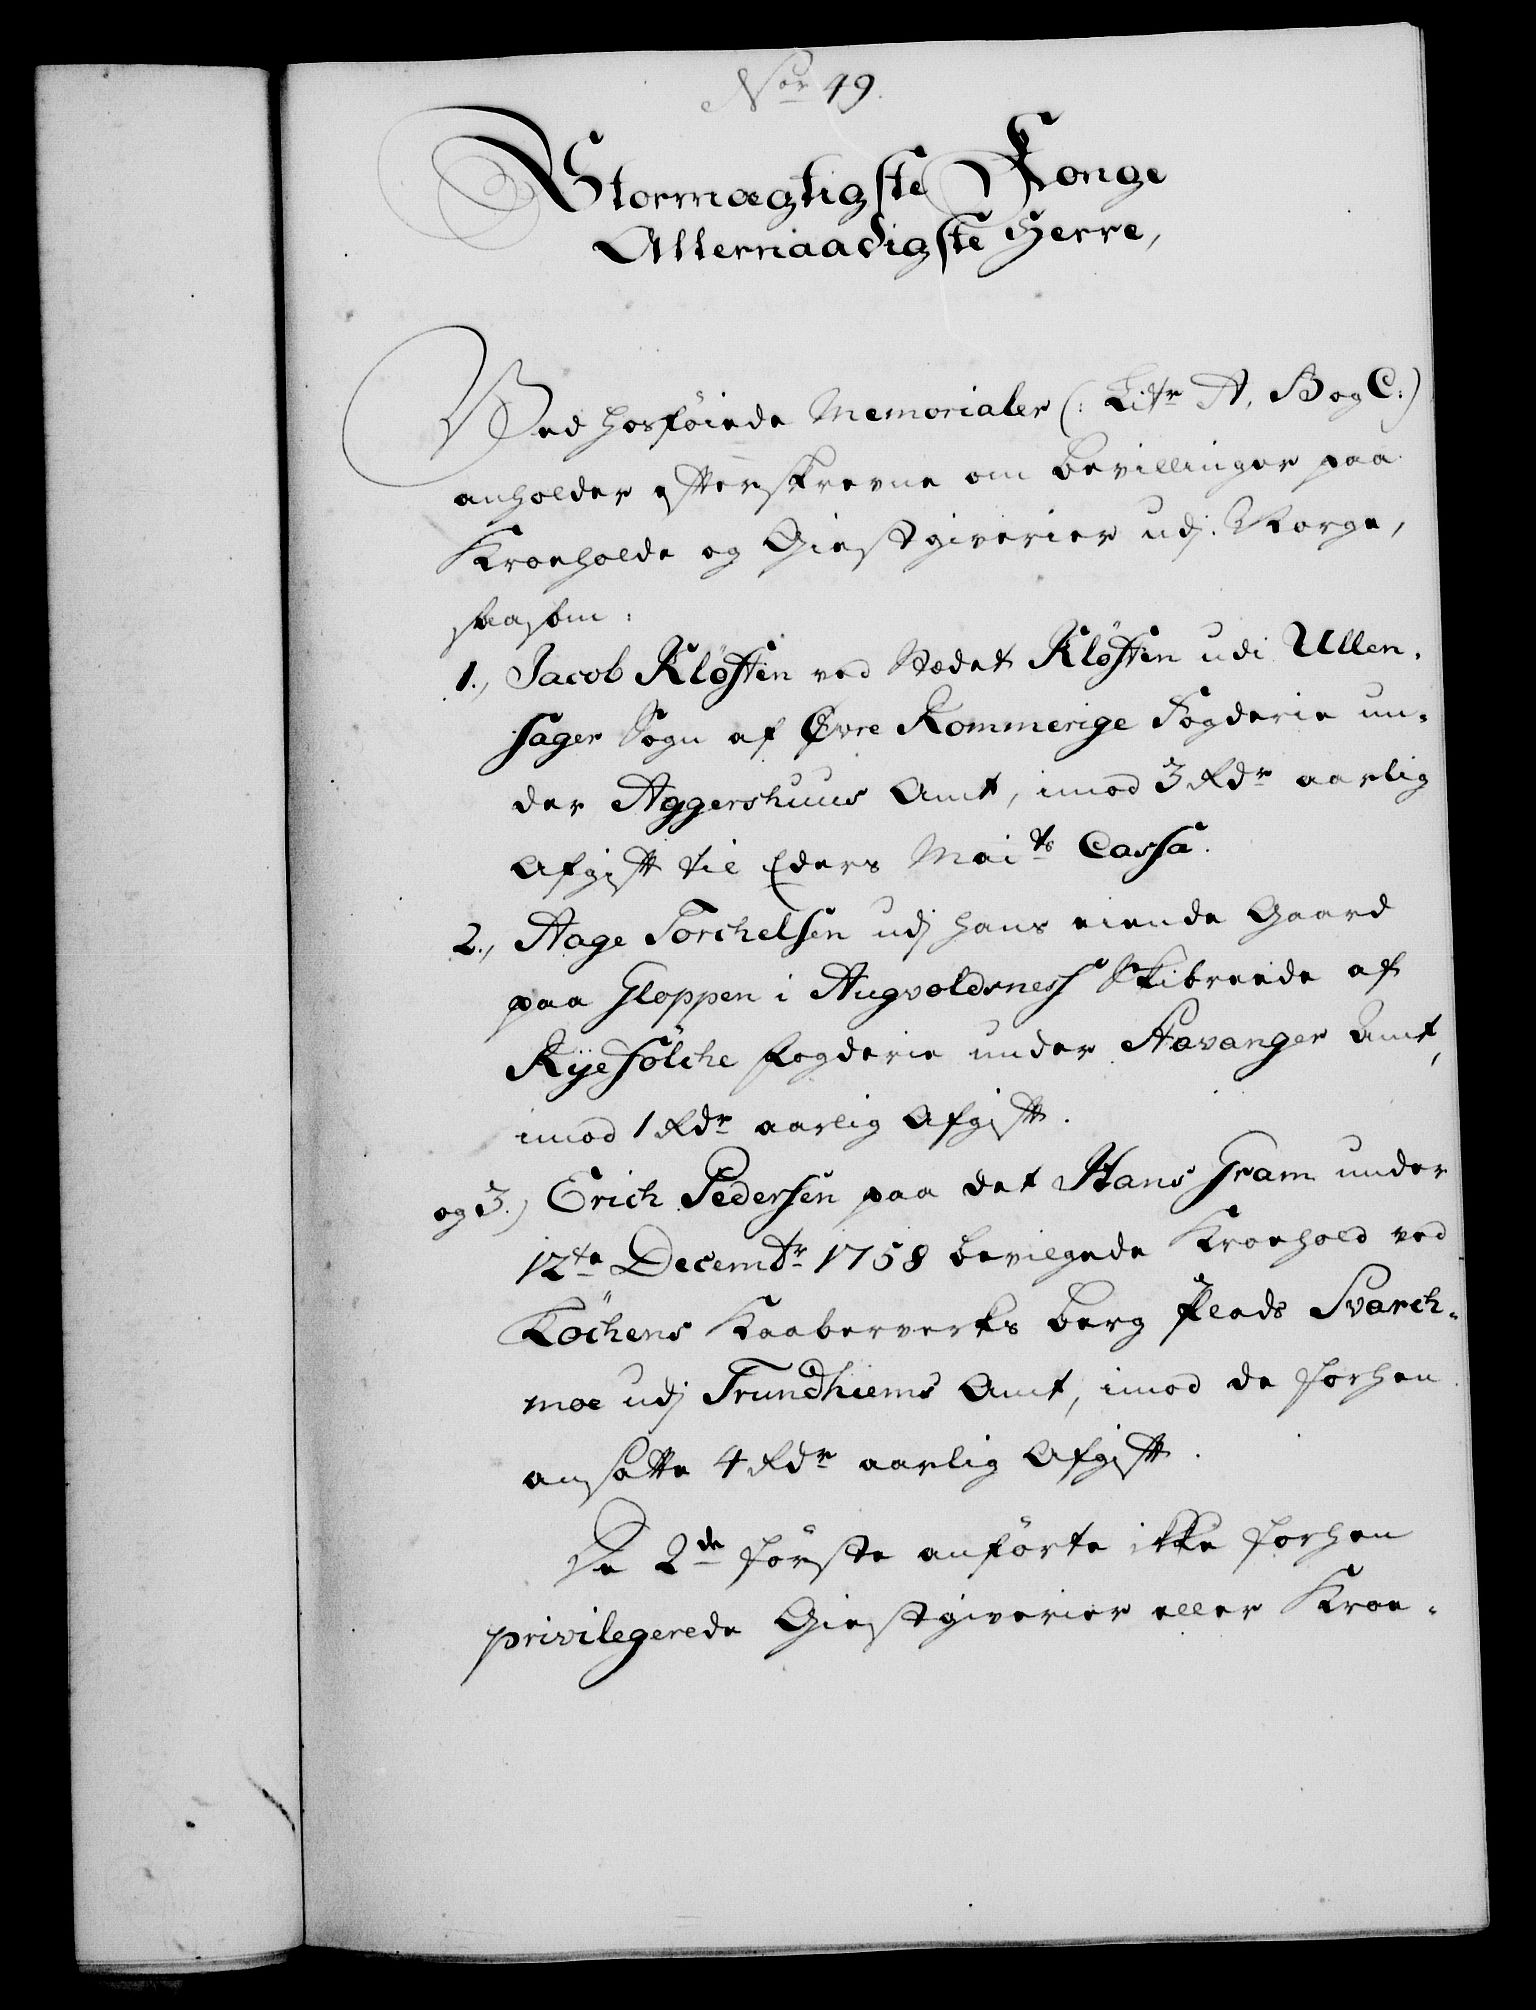 Nor 49.
Stormægtigste Konge
Allernaadigste Herre,
Ved hosföiede Memorialer (: Littr A, B og C:)
anholder efterskrevne om bevillinger paa
Kroeholde og Giestgiverier udj Norge,
saasom:
1., Jacob Klöften ved Stædet Klöften udi Ullen-
sager Sogn af Øvre Rommerige Fogderie un-
der Aggershuus Amt, imod 3 Rdr aarlig
Afgift til Eders Maits Cassa.
2., Aage Torchelsen udj hans eiende Gaard
paa Gloppen i Augvoldsness Skibreede af
Ryefölche Fogderie under Stavanger Amt,
imod 1 Rdr aarlig Afgift.
og 3.) Erich Pedersen paa det Hans Gram under
12te Decembr 1758 bevilgede Kroehold ved
Köchens Kaaberverks berg Plads Svarch-
moe udj Trundhiems Amt, imod de forhen
ansatte 4 Rdr aarlig Afgift.
De 2de förste anförte ikke forhen
privilegerede Giestgiverier eller Kroe-